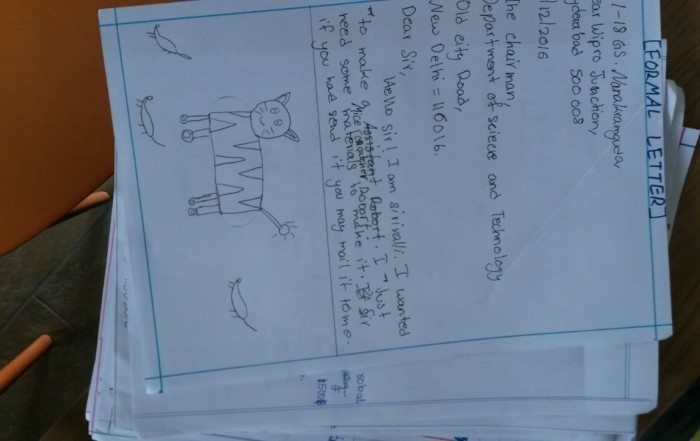 [FORMAL LETTER]
1-1865. Nanakramguda
ear Wipro Junction,
yderabad 500008
/12/2016
he chairman,
Department of sciece and Technology
Old city Road,
New Delhi = 110016.
Dear Sir,
Hello sir! I am sirivalli. I wanted
to make a Assistant Robort. I just
Mice Catcher Robort.
need some materials to make it. Sir
if you had send it you may mail it to me.
robot